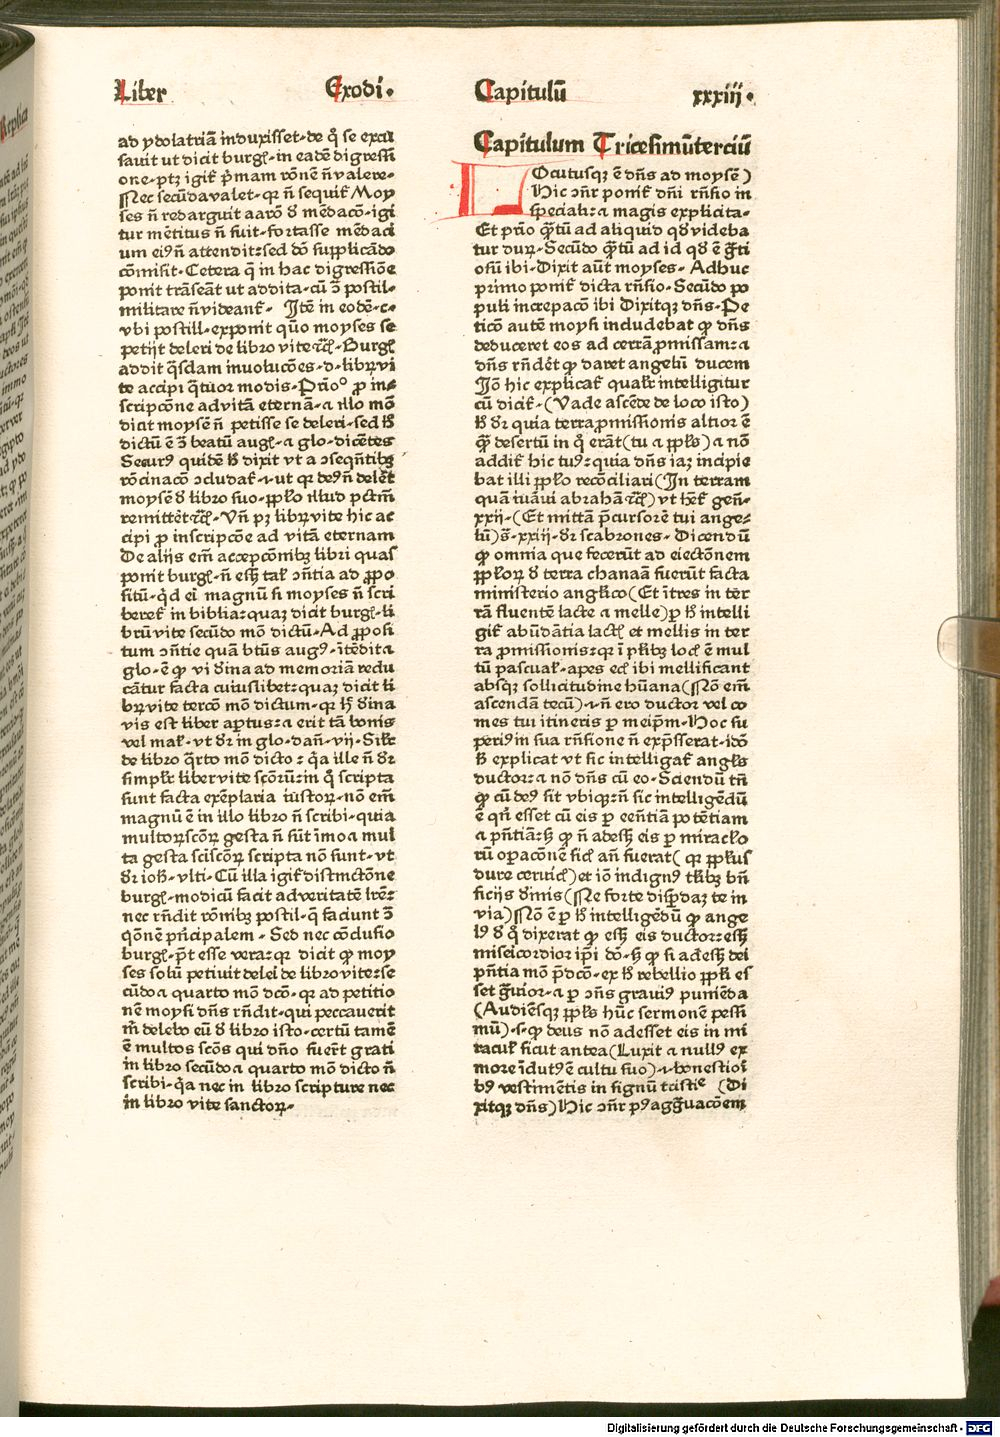 Liber Exodi. Capitulū xxxiij.
ad ydolatriā induxisset. de q̊ se excu
sauit ut dicit burgꝭ. in eadē digressi
one. ptꝫ igit̄ p̄mam rōnē ñ valere.
Nec secūda valet. qꝛ ñ sequit̄ Moy
ses ñ redarguit aarō ꝺ mēdacō. igi
tur mētitus ñ fuit. fortasse mēdaci
um eiꝰ ñ attendit: sed dō supplicādo
cōmisit. Cetera q̄ in hac digressiōe
ponit trāseāt ut addita. cū ɔ̄ postil.
militare ñ videant̄. Itē in eodē. c.
vbi postill. exponit quō moyses se
petijt deleri de libro vite ⁊cꝭ. Burgꝭ
addit q̄sdam inuolucōes. d. libꝝ vi
te accipi q̄tuor modis. Prīo ꝓ in
scripcōne ad vitā eternā. a illo mō
dicit moysē ñ petisse se deleri. sed hꝭ
dictū ē ɔ̄ beatū augꝭ. a glo. dicētes
Securꝰ quidē hꝭ dixit vt a ɔseqñtibꝫ
rōcinacō ɔcludat̄. ut qꝛ deꝰ ñ delēt
moysē ꝺ libro suo. ppl̄o illud pctm̄
remittēt ⁊cꝭ. Vñ pꝫ libꝝ vite hic ac
cipi ꝓ inscripcōe ad vitā eternam
De alijs em̄ accepcōnibꝫ libri quas
ponit burgꝭ. ñ esꝫ tał ɔñtia ad ꝓpo
situ. q̄d ei magnū si moyses ñ scri
beret̄ in biblia: quaꝫ dicit burgꝭ. li
brū vite secūdo mō dictū. Ad ꝓposi
tum ɔñtie quā btūs augꝰ. ītēdit a
glo. ē ꝙ vi ꝺina ad memoriā redu
cātur facta cuiuslibet: quaꝫ dicit li
bꝝ vite tercō mō dictum. qꝛ hꝭ ꝺina
vis est liber aꝑtus: a erit tā bonis
vel mał. vt ꝺr in glo. dañ. vij. Sił
de libro q̄rto mō dicto: q̄a ille ñ ꝺr
simpłr liber vite scōrū: in q̊ scripta
sunt facta exēplaria iustoꝝ. nō em̄
magnū ē in illo libro ñ scribi. quia
multoꝝ scōꝝ gesta ñ sūt īmo a mul
ta gesta sciscōꝝ scripta nō sunt. vt
ꝺr ioh̄. vlti. Cū illa igit̄ distinctōne
burgꝭ. modicū facit ad veritatē lr̄e:
nec rn̄dit rōnibꝫ postil. q̄ faciunt ɔ̄
qōnē pn̄cipalem. Sed nec cōclusio
burgꝭ. p̄t esse vera: qꝛ dicit ꝙ moy
ses solū petiuit delei de libro vite: se
cūdo a quarto mō dcō. qꝛ ad petitio
nē moysi dn̄s rn̄dit. qui peccauerit
m̄ delebo eū ꝺ libro isto. certū tamē
ē multos scōs qui dn̄o fuer̄t grati
in libro secūdo a quarto mō dicto ñ
scribi. q̄a nec in libro scripture nec
in libro vite sanctoꝝ.
Capitulum Tricesimūterciū
LOcutusqꝫ ē dn̄s ad moysē)
Hic ɔn̄r ponit̄ dn̄i rn̄sio in
speciali: a magis explicita.
Et prīo q̄tū ad aliquid qꝺ videba
tur duꝝ. Secūdo q̄tū ad id qꝺ ē ḡti
osū ibi. Dixit aūt moyses. Adhuc
primo ponit̄ dicta rn̄sio. Secūdo po
puli increpacō ibi Dixitqꝫ dn̄s. Pe
ticō autē moysi includebat ꝙ dn̄s
deduceret eos ad terrā ꝓmissam: a
dn̄s rn̄dēt ꝙ daret angelū ducem
Iō hic explicat̄ qualit̄ intelligitur
cū dicit̄. (Vade ascēde de loco isto)
hꝭ ꝺr quia terra ꝓmissionis altior ē
q̄ desertū in q̊ erāt (tu a ppłs) a nō
addit̄ hic tuꝰ: quia dn̄s iaꝫ incipie
bat illi ppło recōciliari (In terram
quā iuraui abrahā ⁊cꝭ) vt het̄ gen̄.
xxij. (Et mittā p̄cursorē tui ange
lū) s̄. xxiij. ꝺr scabrones. Dicendū
ꝙ omnia que fecerūt ad eiectōnem
ppłoꝝ ꝺ terra chanaā fuerūt facta
ministerio anglico (Et ītres in ter
rā fluentē lacte a melle) p hꝭ intelli
git̄ abūdātia lactꝭ et mellis in ter
ra ꝓmissionis: qꝛ ī płibꝫ locꝭ ē mul
tū pascuał. apes ecꝭ ibi mellificant
absqꝫ sollicitudine hūana (Nō em̄
ascendā tecū). ñ ero ductor vel co
mes tui itineris p meip̄m. Hoc su
periꝰ in sua rn̄sione ñ exp̄sserat. idō
hꝭ explicat vt sic intelligat̄ angłs
ductor: a nō dn̄s cū eo. Sciendū tn̄
ꝙ cū deꝰ sit vbiqꝫ: ñ sic intelligēdū
ē qn̄ esset cū eis p cēntiā potētiam
a pn̄tiā: sꝫ ꝙ ñ adesꝫ eis p miraclo
rū opacōnē sicꝭ añ fuerat (qꝛ ppłus
dure ceruicꝭ) et iō indignꝰ tłibꝫ bn̄
ficijs ꝺinis (Ne forte disꝑdaꝫ te in
via) Nō ē p hꝭ intelligēdū ꝙ ange
lꝰ ꝺ q̊ dixerat ꝙ esꝫ eis ductor: esꝫ
miseicordior ip̄i dō. sꝫ ꝙ si adesꝫ dei
pn̄tia mō p̄dcō. ex hꝭ rebellio ppłi es
set ḡuior. a p ɔn̄s grauiꝰ puniēda
(Audiēsqꝫ ppłs hūc sermonē pessi
mū). s. ꝙ deus nō adesset eis in mi
racuł sicut antea (Luxit a nullꝰ ex
more īdutꝰ ē cultu suo). honestiori
bꝰ vestimētis in signū tristicie (Di
xitqꝫ dn̄s) Hic ɔn̄r pꝰ agg̃uacōem
Digitalisierung gefördert durch die Deutsche Forschungsgemeinschaft - DFG